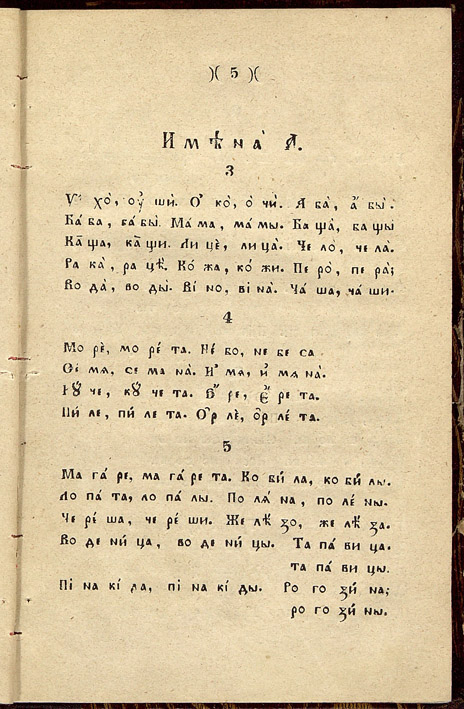 )( 5 )(
Имѣна̀ А҃.
3
Ѹ҆ хо̀, оу҆ ши. О҆ ко̀, о҆ чи. Ꙗ ба̀, ꙗ҆ бы̀.
Ба́ ба, ба́ бы. Ма́ ма, ма́ мы. Ба ща̀, ба щы̀
Ка́ ша, ка́ ши. Ли цѐ, ли ца̀. Че ло̀, че ла̀.
Ра ка̀, ра цѣ̀. Ко́ жа, ко́ жи. Пе ро̀, пе ра̀;
Во да̀, во ды̀. Ві́ но, ві на̀. Ча́ ша, ча́ ши.
4
Мо рѐ, мо ре́ та. Не́ бо, не бе са
Се́ мѧ, се ма на̀. И҆́ мѧ, и҆ мѧ на̀.
Кꙋ́ че, кꙋ́ че та. ре, ре та.
Пи́ ле, пи́ ле та. Ор лѐ, ор ле́ та.
5
Ма га́ ре, ма га́ ре та. Ко би́ ла, ко би́ лы.
Ло па́ та, ло па́ лы. По лѧ́ на, по ле́ ны.
Че ре́ ша, че ре́ ши. Же лѣ́ зо, же лѣ́ за.
Во де ни́ ца, во де ни́ цы. Та па́ ви ца.
та па́ ви цы.
Пі на кі́ да, пі на кі́ ды. Ро го зи́ на;
ро го зи́ ны.